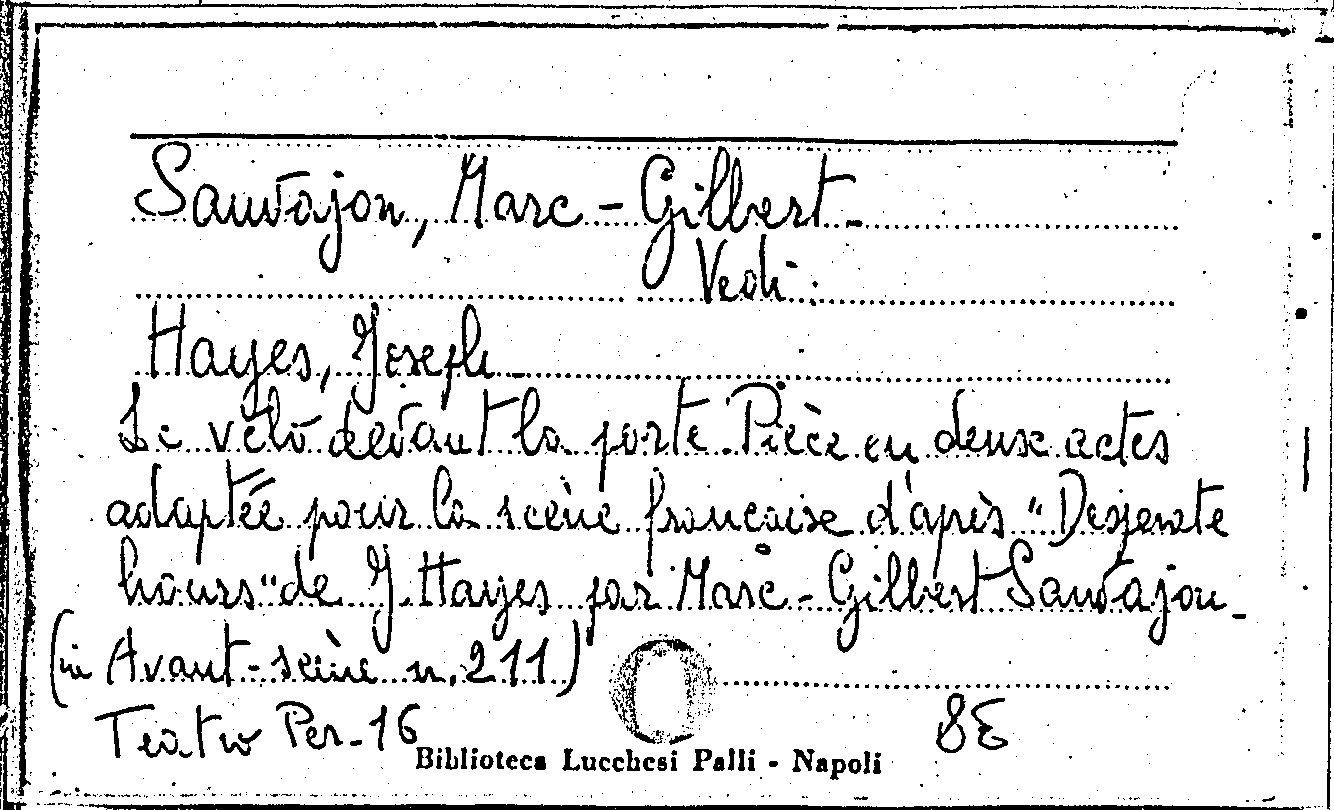 Sauvajon, Marc-Gilbert-
Vedi:
Hayes, Joseph-
Le vélo devant la porte. Pièce en deux actes
adaptée pour la scène française d'après "Desperate
hours" de J. Hayes par Marc-Gilbert Sauvajon-
(in Avant-scène n. 211)
Teatro Per-16 8E
Biblioteca Lucchesi Palli - Napoli